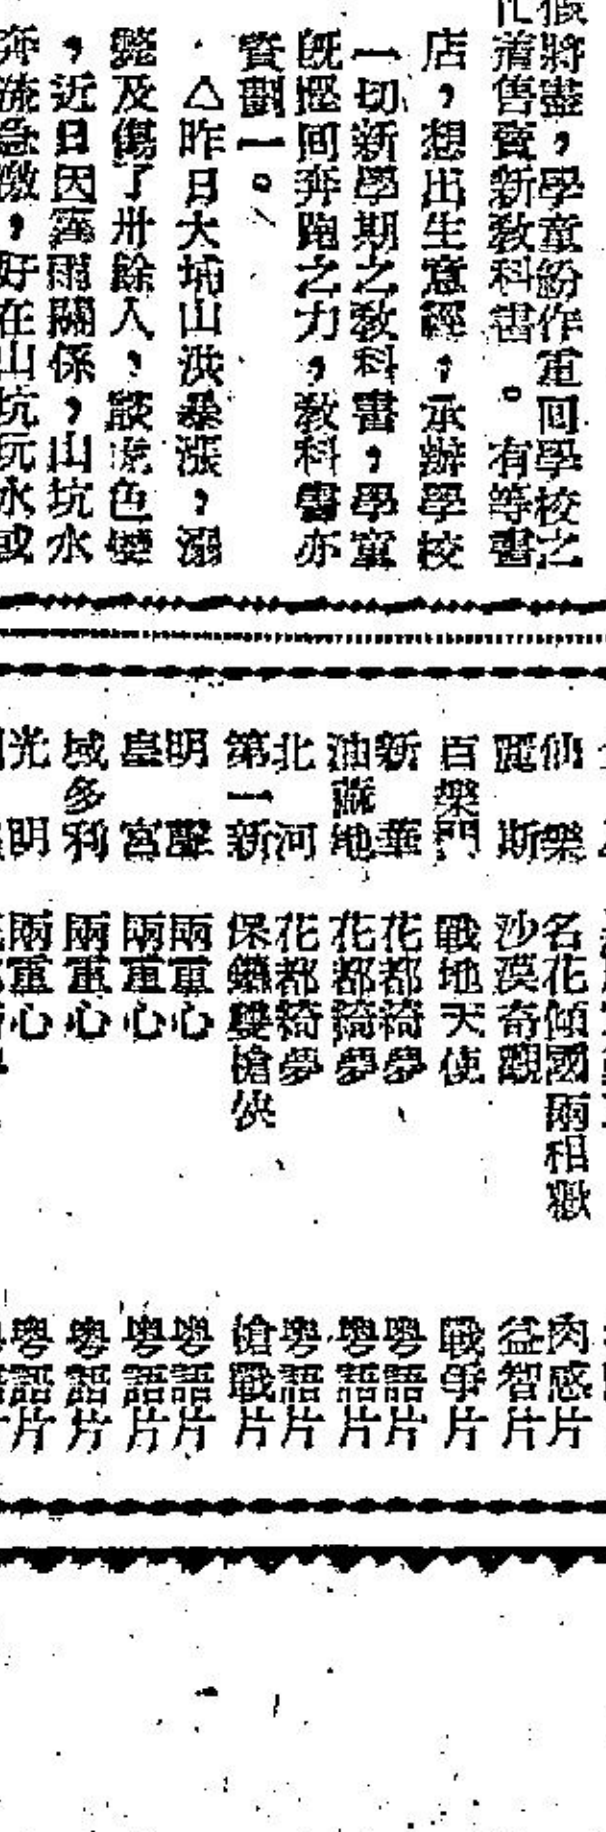 假將盡，學童紛作重回學校之
忙着售賣新教科書。有等書
店，想出生意經，承辦學校
一切新學期之教科書，學童
旣慳囘奔跑之力，教科書亦
賣劃一。
△昨日大埔山洪暴漲，溺
斃及傷了卅餘人，談虎色變
，近日因霪雨關係，山坑水
奔流急激，好在山坑玩水或
仙樂 名花傾國兩相歡 肉感片
麗斯 沙漠奇觀 益智片
百樂門 戰地天使 戰爭片
新華 花都綺夢 粵語片
油蔴地 花都綺夢 粵語片
北河 花都綺夢 粵語片
第一新 保鑣雙槍俠 槍戰片
明聲 兩重心 粵語片
皇宮 兩重心 粵語片
域多利 兩重心 粵語片
光明 兩重心 粵語片